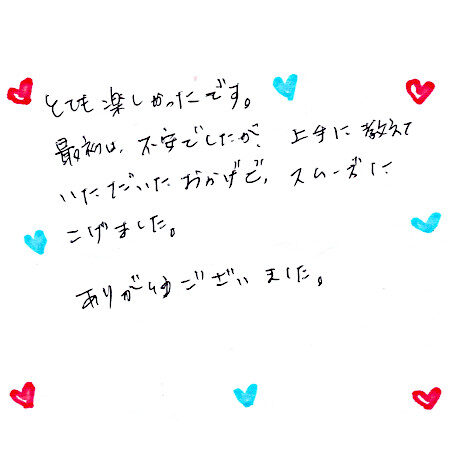 とても楽しかったです。
最初は、不安でしたが、上手に教えて
いただいたおかげで、スムーズに
こげました。
ありがとうございました。